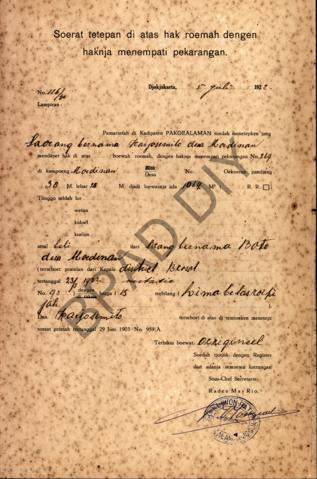 Soerat tetepan di atas hak roemah dengen
haknja menempati pekarangan.
Djokjakarta, 5 Juli 1922
No. 116/
Lampiran:
Pamarintah di Kadipaten PAKOEALAMAN soedah menetepken jang
Saorang bernama Karjosemito desa Mardinan
mendapet hak di atas boewah roemah, dengen haknja menempati pekarangan No. 269
di kampoeng Mordinan Desa No. Oekoeran, pandjang
38 M. lebar 28 M. djadi loewasnja ada 1064 M² ( R. R.
Tinggo sebelah lor
wetan
kidoel
koelon
asal beli dari Orang bernama Boto
desa Mordinan
(terseboet pratelan dari Kepala district Brosot
tertanggal 23/
No. 92 dengen harga f 15 terbilang ( Lima belas roepi
jah
Dan Karjosemito terseboet di atas di temtoeken menetepi
soerat printah tertanggal 29 Juni 1903 No. 959/A.
Tertoelis boewat:
Soedah tjotjok dengen Register
dan adanja semoewa katrangan
Sous-Chef Secretaris:
Raden Mas Rio.
BPAD DIY